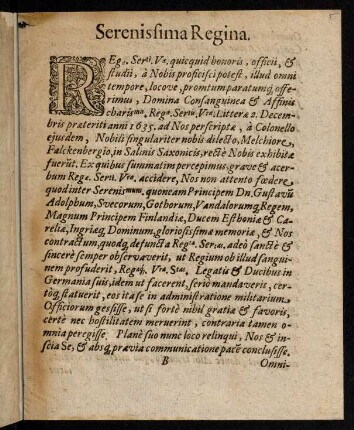 Serenissima Regina.
REgæ. Sertⁱ. Væ. quicquid honoris, officii, &
studii, à Nobis proficisci potest, illud omni
tempore, locove, promtum paratumq́; offe-
rimus, Domina Consanguinea & Affinis
charissima, Regæ. Sertis. Væ. Litteræ 2. Decem-
bris præteriti anni 1635, ad Nos perscriptæ, à Colonello
ejusdem, Nobis singulariter nobis dilecto, Melchiore,
Falckenbergio, in Salinis Saxonicis, rectè Nobis exhibitæ
fuerũt. Ex quibus summatim percepimus, grave & acer-
bum Regæ. Serti. Væ. accidere, Nos non attento fœdere,
quod inter Serenismum. quoneam Principem Dn. Gustavũ
Adolphum, Svecorum, Gothorum, Vandalorumq́; Regem,
Magnum Principem Finlandiæ, Ducem Esthoniæ & Ca-
reliæ, Ingriæq́; Dominum, gloriosissimæ memoriæ, & Nos
contractum, quodq́; defuncta Regia. Ser.as. adeò sanctè &
sincerè semper observaverit, ut Regium ob illud sangui-
nem profuderit, Regaq́;. Vra. Stas. Legatis & Ducibus in
Germania suis, idem ut facerent, seriò mandaverit, cer-
tòq́; statuerit, eos ita se in administratione militarium
Officiorum gessisse, ut si fortè nihil gratiæ & favoris,
certè nec hostilitatem meruerint, contraria tamen o-
mnia peregisse. Planè suo nunc loco relinqui, Nos &
in-
scia Se, & absq́; prævia communicatione pacẽ conclusisse.
B
Omni-